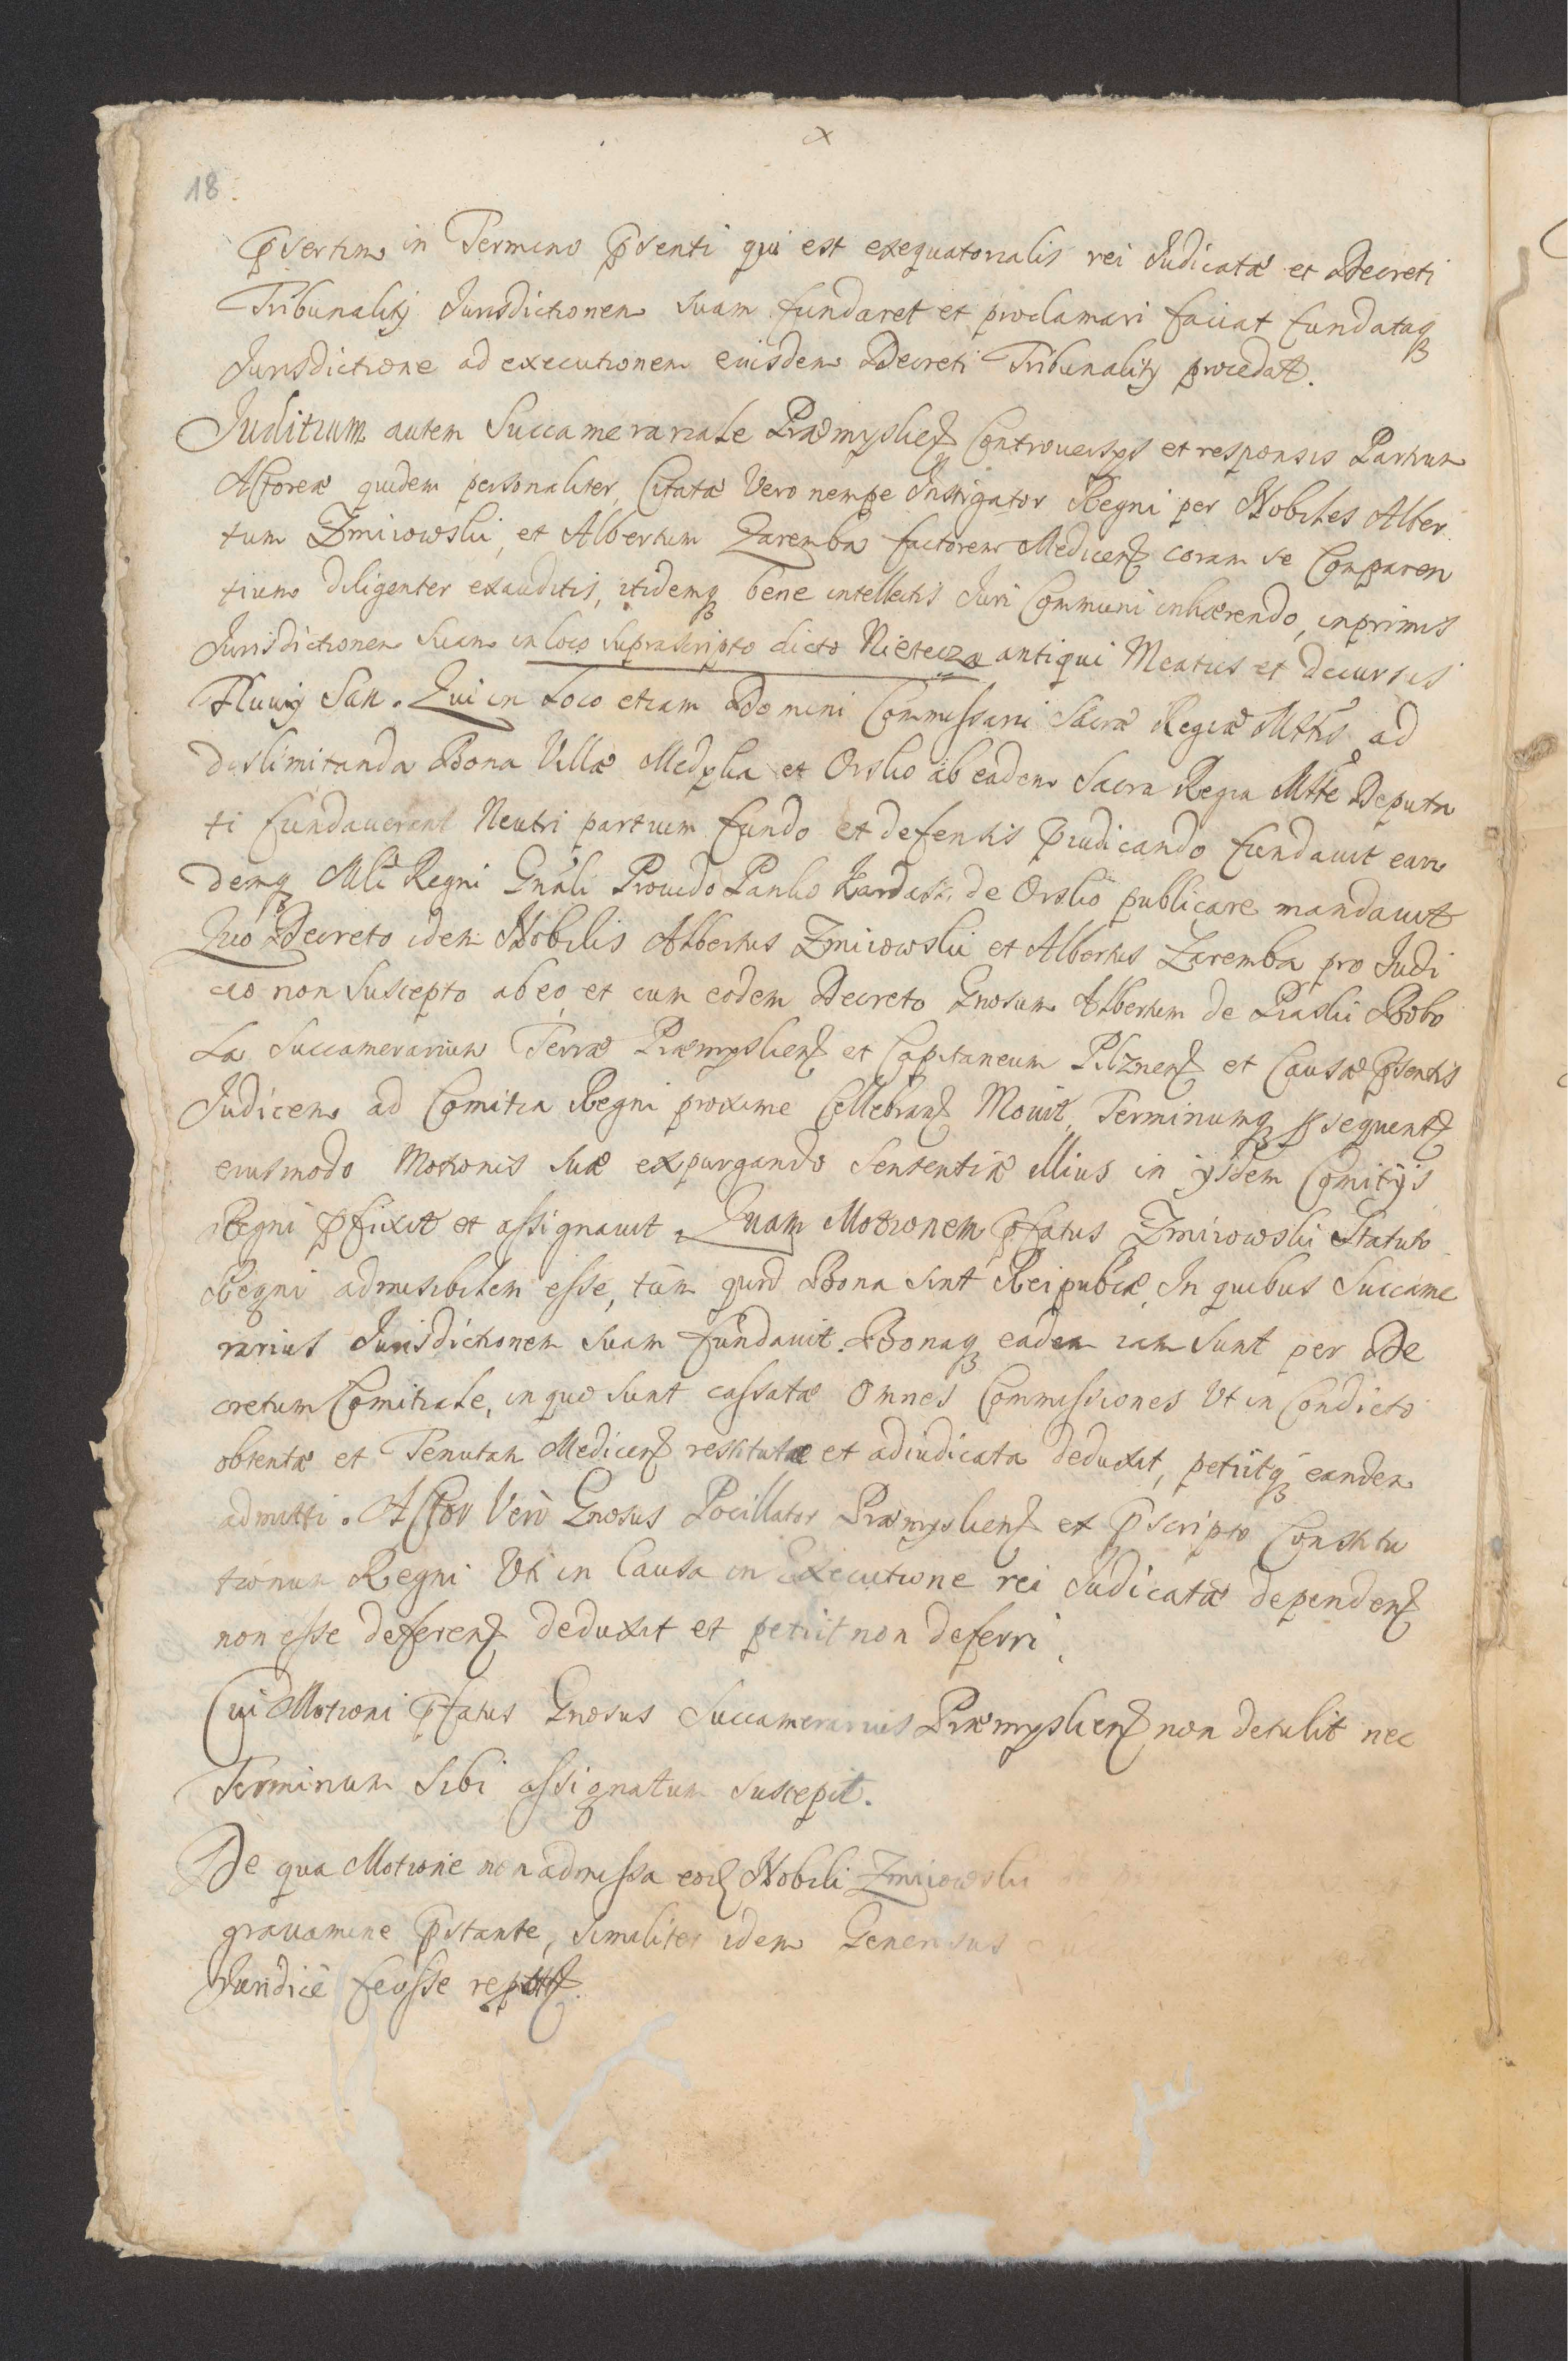 x
18.
Psertim in Termino Psenti qui est exequutorialis rei Judicatæ et Decreti
Tribunalitij Jurisdictionem suam fundaret et proclamari faciat fundataq
Jurisdictione ad executionem eiusdem Decreti Tribunalitij procedat.
Juditium autem Succamerariale Præmyslien Controversys et responsis Partium
Actoreæ quidem personaliter, Citatæ Vero nempe Instigator Regni per Nobiles Alber
tum Zmiiowski, et Albertum Zaremba factorem Medicen coram se Comparen
tium diligenter exauditis, itidemq bene intellectis Juri Communi inhærendo, inprimis
Jurisdictionem suam in loco suprascripto dicto Nieteiza antiqui Meatus et decursus
Fluvij San. Qui in Loco etiam Domini Commissarii Sacræ Regiæ Mttis ad
dislimitanda Bona Villæ Medyka et Orsko ab eadem Sacra Regia Mtte Deputa
ti fundaverant Neutri partium fundo et defensis Piudicando fundavit ean
demq Mli Regni Gnali Provido Panko Kardasz de Orsko publicare mandavit
Quo Decreto idem Nobilis Albertus Zmiiowski et Albertus Zaremba pro Judi
cio non suscepto ab eo et cum eodem Decreto Gnosum Albertum de Piaski Bobo
La Succamerarium Terræ Præmyslien et Capitaneum Pilznen et Causæ Psentis
Judicem ad Comitia Regni proxime Cellebran Movit, Terminumq Psequent
eiusmodo Motionis suæ expurgando sententiæ illius in ijsdem Comitijs
Regni Pfixit et assignavit. Quam Motionem Pfatus Zmiiowski Statuto
Regni admisibilem esse, tum quod Bona sint Reipublicæ, In quibus Succame
rarius Jurisdictionem suam fundavit. Bonaq eadem iam sunt per De
cretum Comitiale, in quo sunt cassatæ omnes Commissiones Ut in Condicto
obtentæ et Tenutam Medicen restitutæ et adiudicata deduxit, petiitq eandem
admitti. Actor Vero Gnosus Pocillator Præmyslien ex Pscripto Constitu
tionum Regni Uti in Causa in Executione rei Judicatæ dependen
non esse deferen deduxit et petiit non deferri.
Cui Motioni Pfatus Gnosus Succamerarius Præmyslien non detulit nec
Terminum sibi assignatum suscepit.
De qua Motione non admissa eod Nobili Zmiiowski
gravamine Pstante, similiter idem Generosus
Juridice feusse